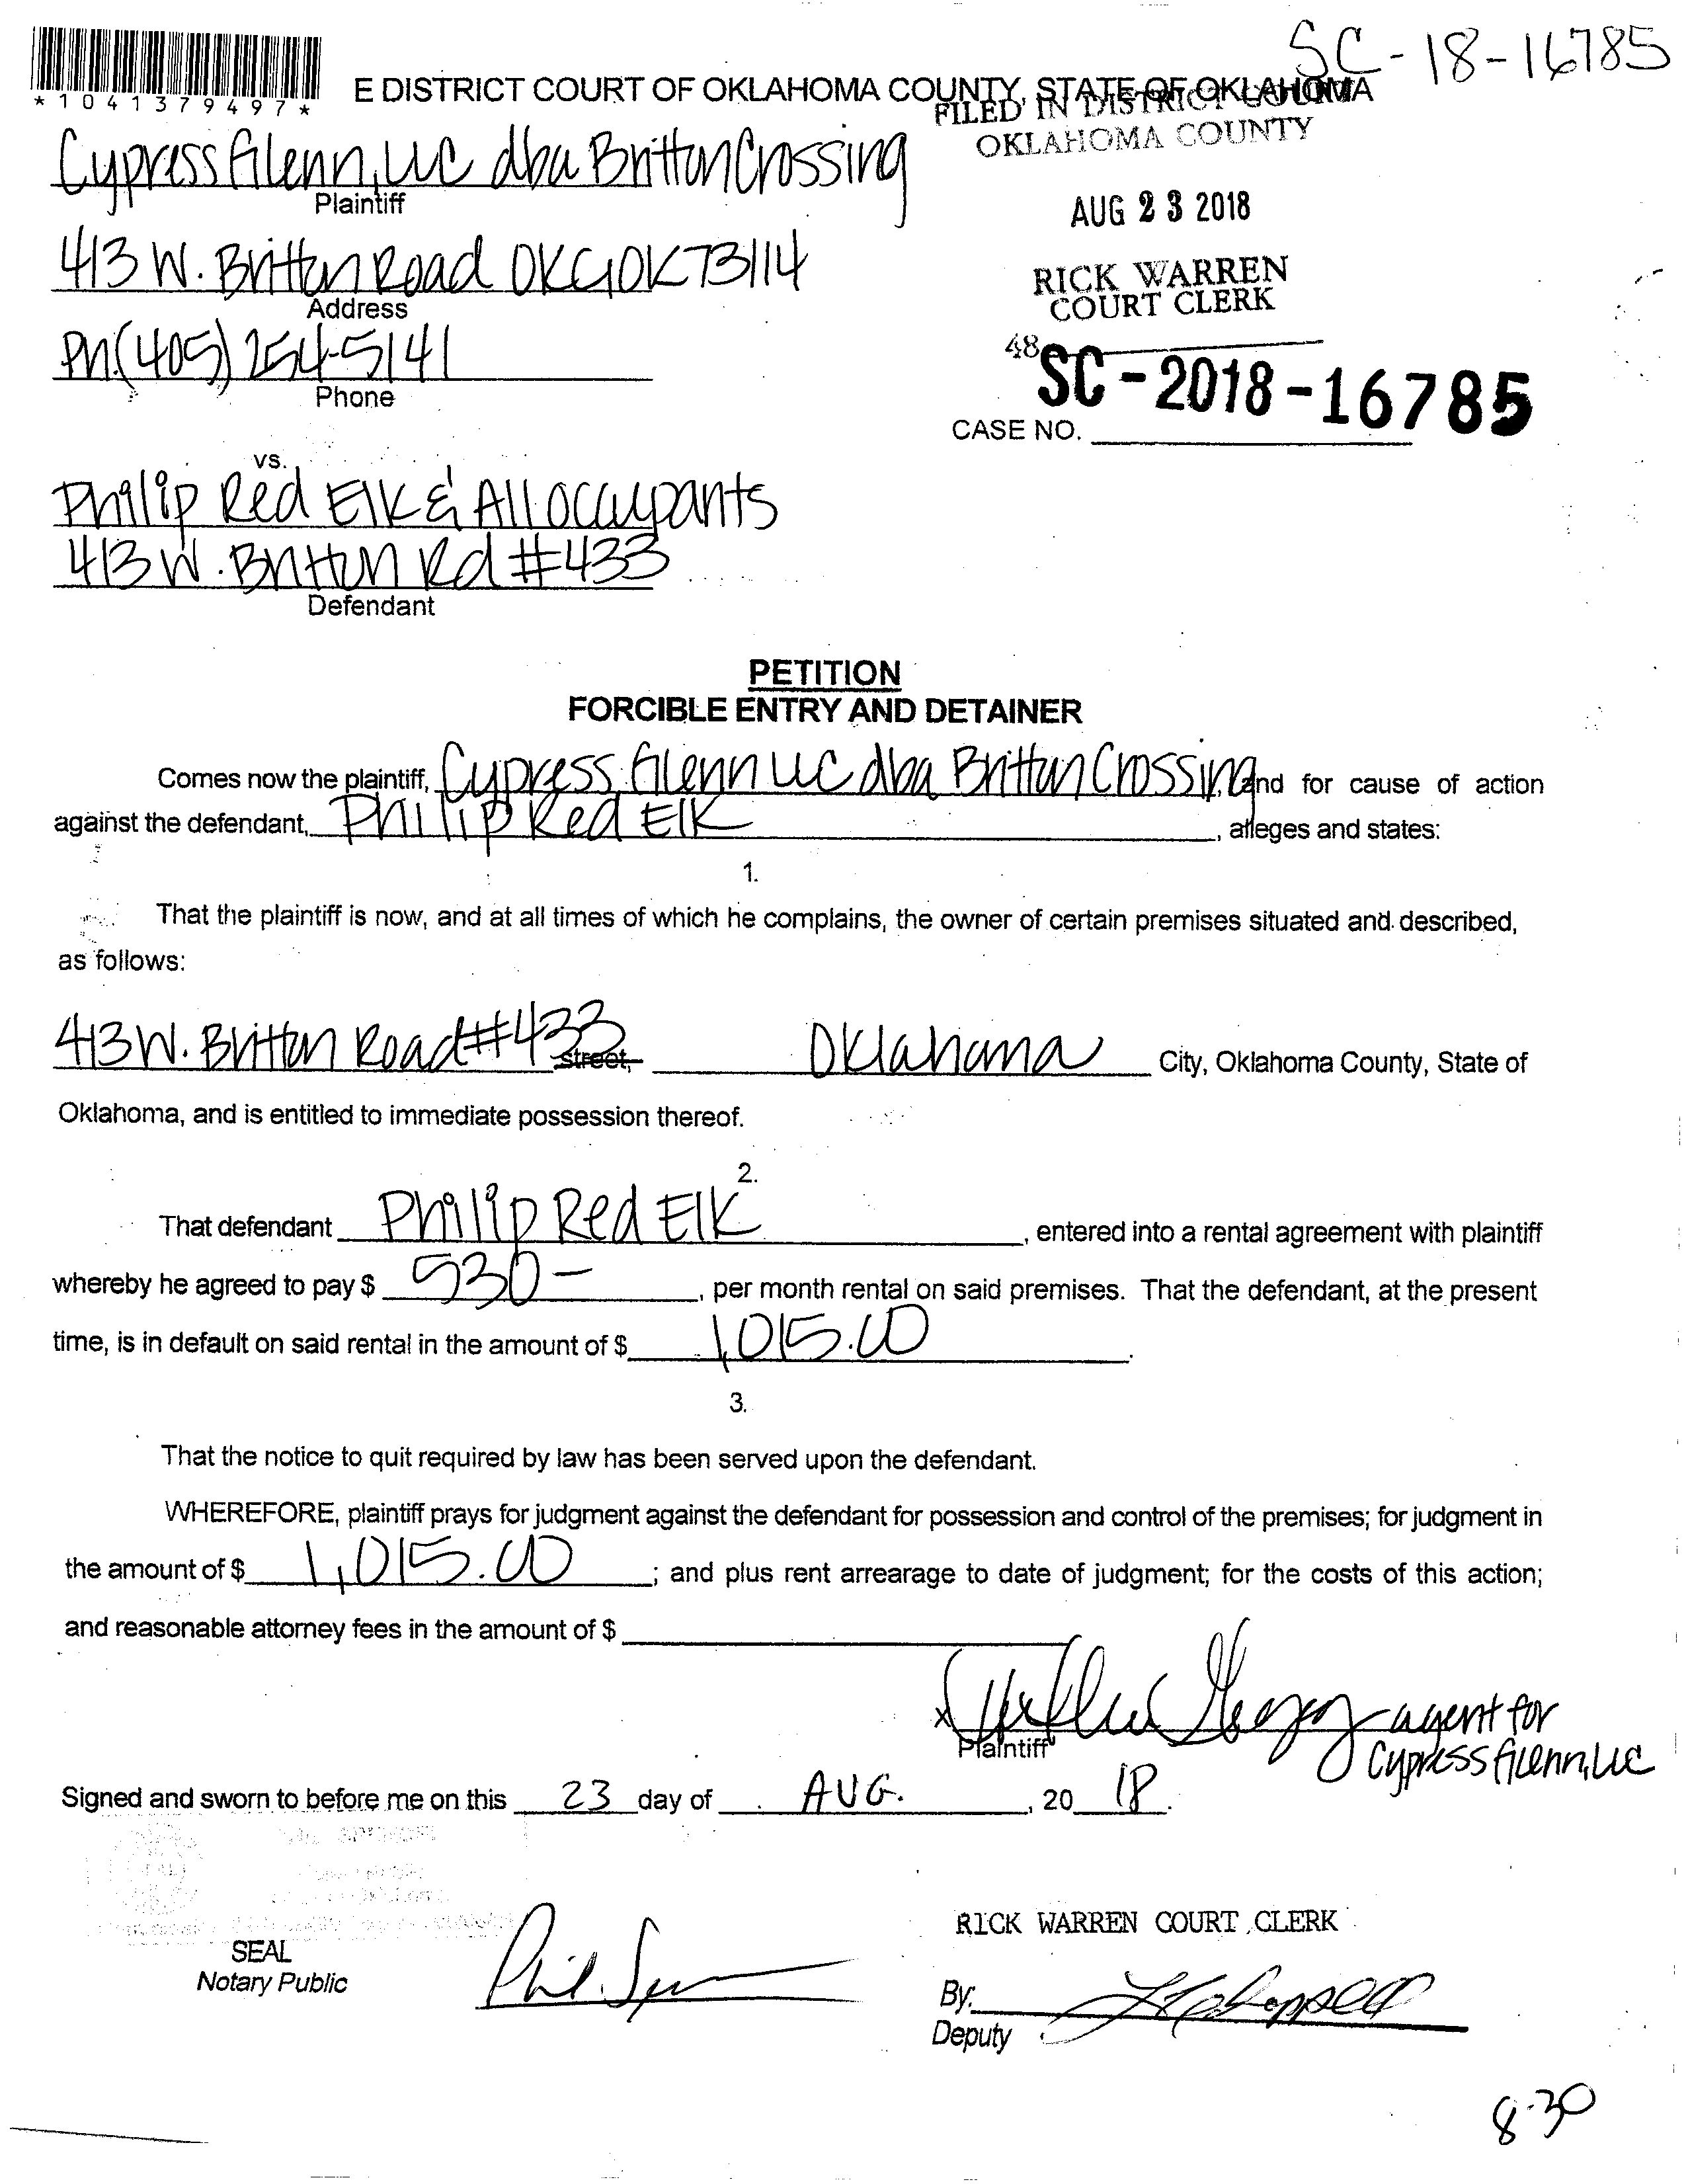 SC-18-16785
*1041379497*
E DISTRICT COURT OF OKLAHOMA COUNTY, STATE OF OKLAHOMA
FILED IN DISTRICT COURT
OKLAHOMA COUNTY
Cypress Glenn, LLC dba Britton Crossing
Plaintiff
AUG 23 2018
413 W. Britton Road OKC, OK 73114
Address
RICK WARREN
COURT CLERK
Ph. (405) 254-5141
Phone
48
SC-2018-16785
CASE NO.
vs.
Philip Red Elk & All occupants
413 W. Britton Rd #433
Defendant
PETITION
FORCIBLE ENTRY AND DETAINER
Comes now the plaintiff, Cypress Glenn LLC dba Britton Crossing, and for cause of action
against the defendant, Philip Red Elk, alleges and states:
1.
That the plaintiff is now, and at all times of which he complains, the owner of certain premises situated and described,
as follows:
413 W. Britton Road #433 street, Oklahoma City, Oklahoma County, State of
Oklahoma, and is entitled to immediate possession thereof.
2.
That defendant Philip Red Elk, entered into a rental agreement with plaintiff
whereby he agreed to pay $ 530-, per month rental on said premises. That the defendant, at the present
time, is in default on said rental in the amount of $ 1,015.00.
3.
That the notice to quit required by law has been served upon the defendant.
WHEREFORE, plaintiff prays for judgment against the defendant for possession and control of the premises; for judgment in
the amount of $ 1,015.00; and plus rent arrearage to date of judgment; for the costs of this action;
and reasonable attorney fees in the amount of $
x agent for
Plaintiff Cypress Glenn, LLC
Signed and sworn to before me on this 23 day of AUG., 20 18.
RICK WARREN COURT CLERK
SEAL
Notary Public
By:
Deputy
8-30